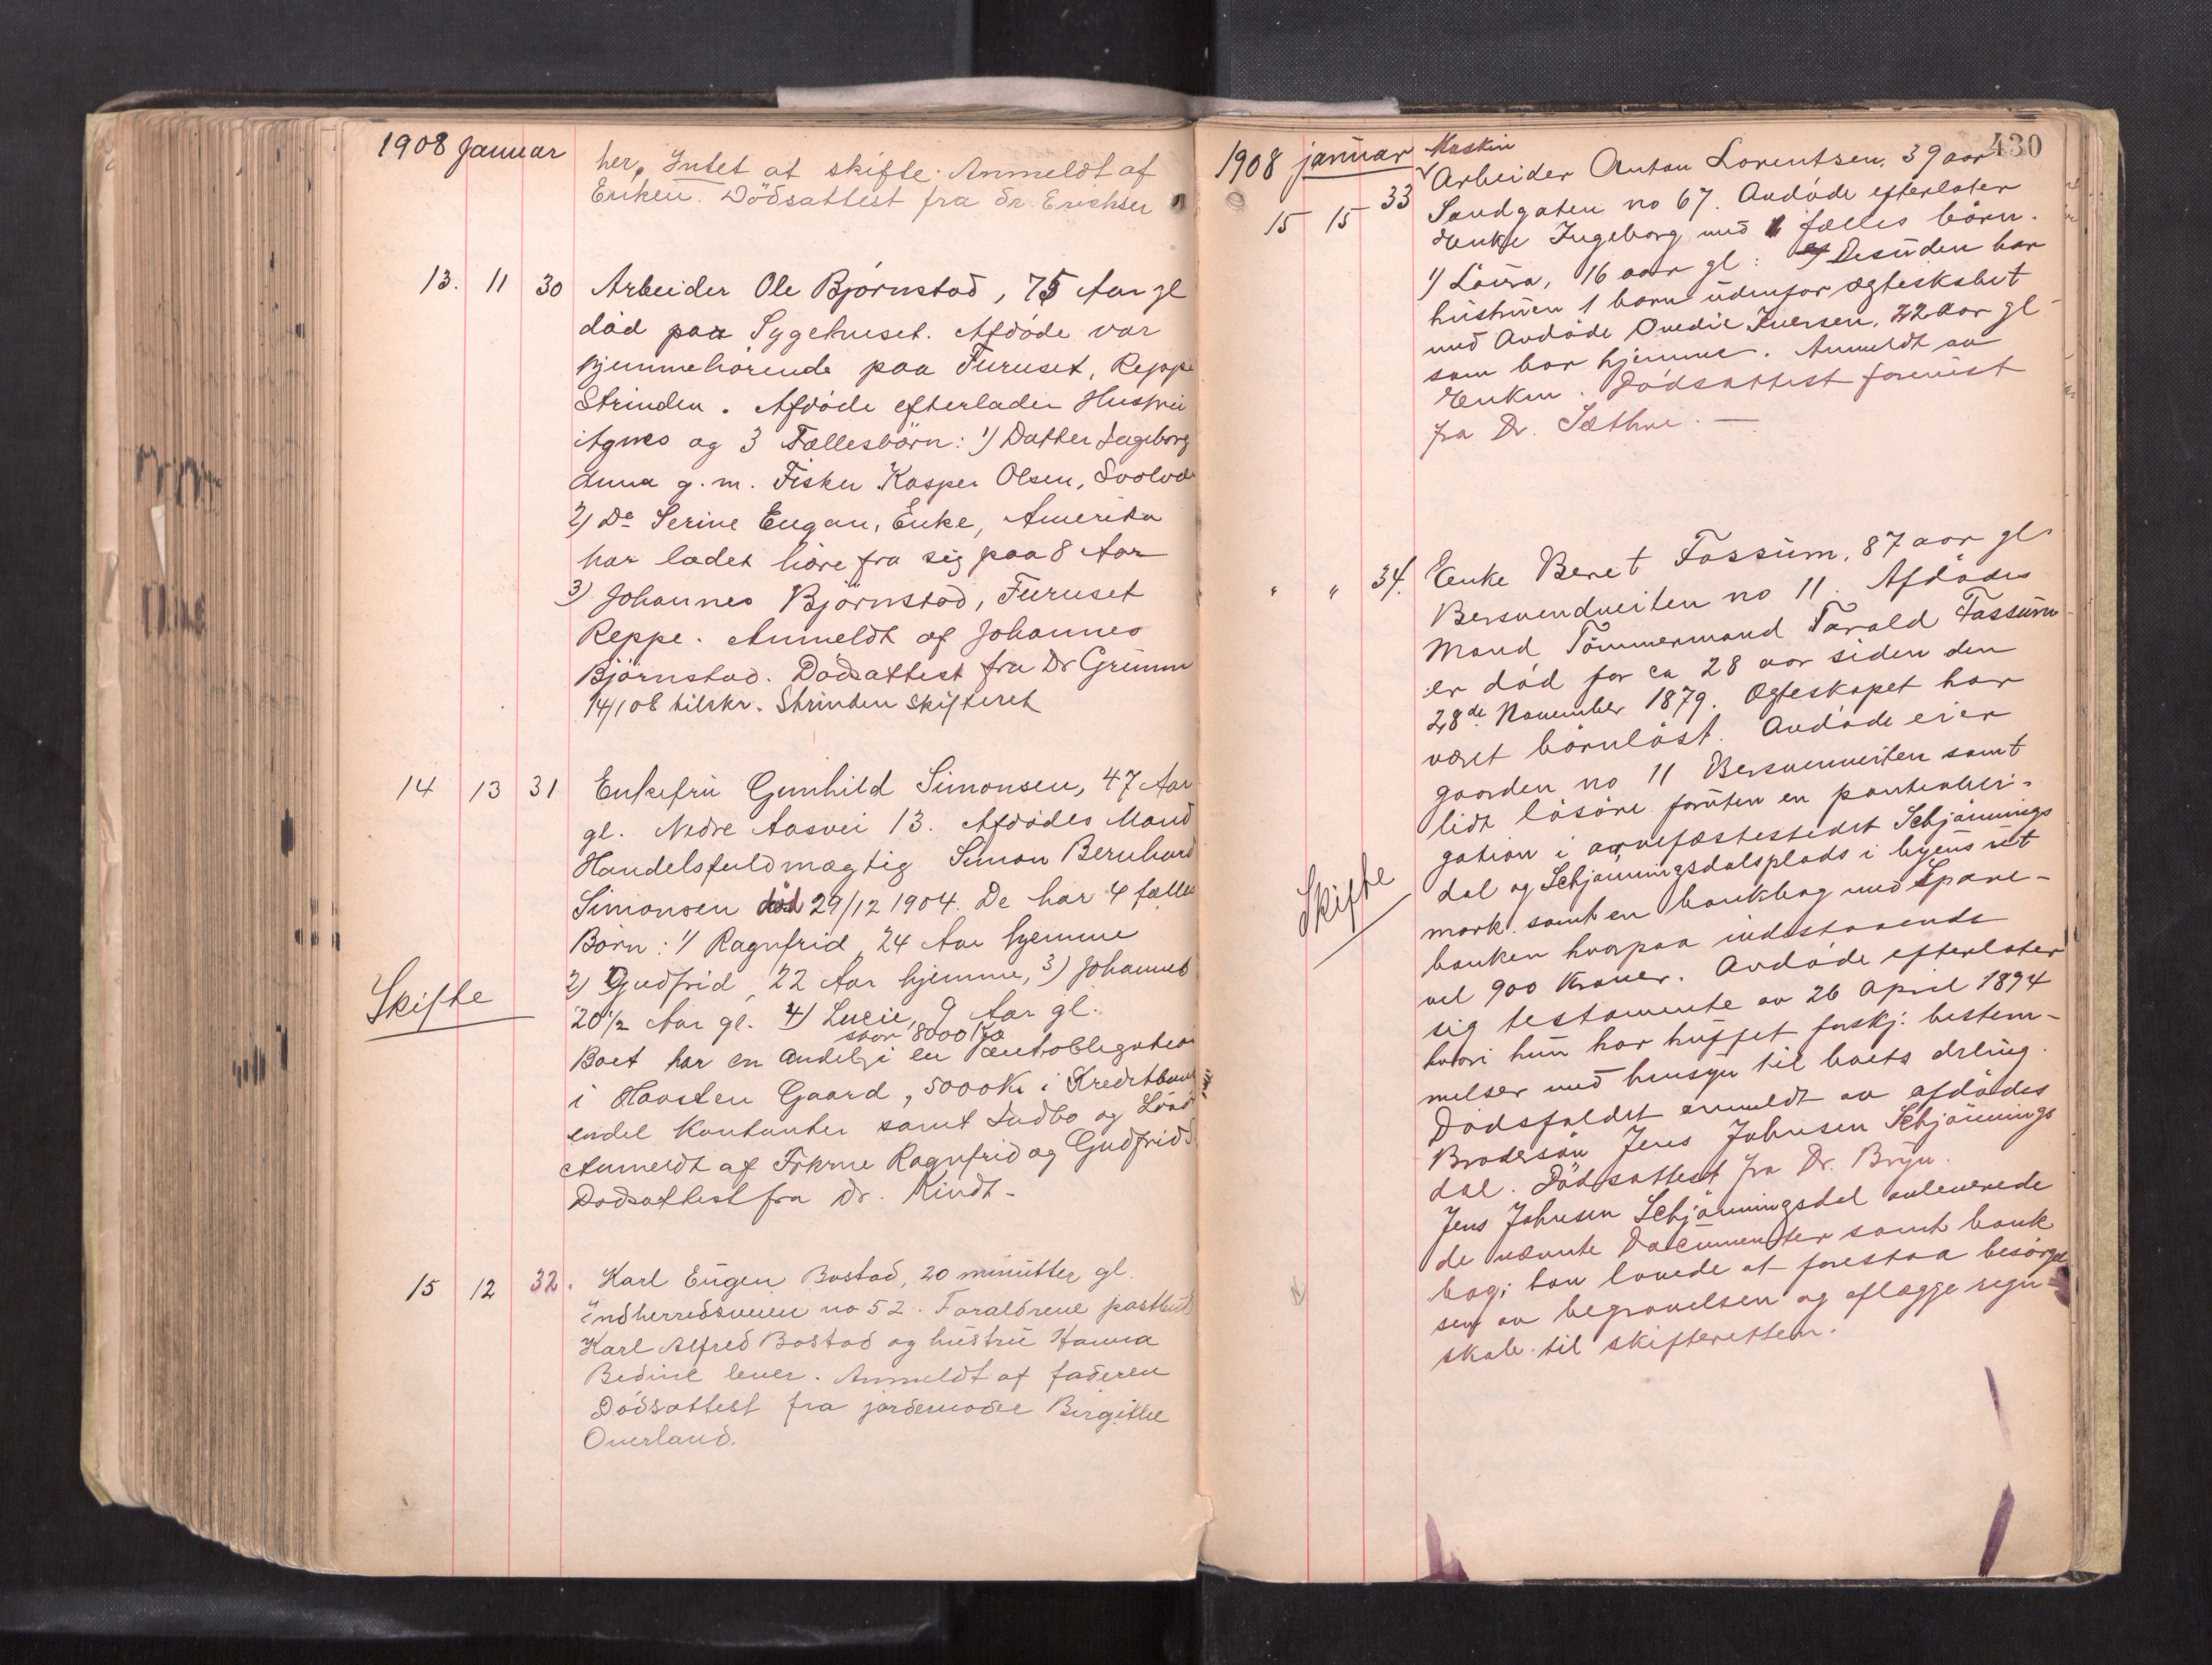 1908 Januar
her, Intet at skifte. Anmeldt af
Enken. Dödsattest fra Dr. Erichsen
13. 11 30 Arbeider Ole Bjørnstad, 75 Aar gl
död paa Sygehuset. Afdöde var
hjemmehörende paa Furuset, Reppe
Strinden. Afdöde efterlader Hustru
Agnes og 3 Fællesbörn: 1) Datter Ingeborg
Anna g.m. Fisker Kasper Olsen, Svolvær
2) Do Serine Eugan, Enke, Amerika
har ladet höre fra sig paa 8 Aar
3) Johannes Björnstad, Furuset
Reppe. Anmeldt af Johannes
Björnstad. Dödsattest fra Dr Grimm
14/1 08 tilskr. Strinden Skifteret
14 13 31 Enkefru Gunhild Simonsen, 47 Aar
gl. Nedre Aasvei 13. Afdödes Mand
Handelsfuldmægtig Simon Bernhard
Simonsen död 29/12 1904. De har 4 fælles
Börn: 1) Ragnfrid, 24 Aar hjemme
2) Gudfrid, 22 Aar hjemme, 3) Johannes
Skifte
20 1/2 Aar gl. 4) Lucie, 9 Aar gl.
stor 8000 Kr
Boet har en Andel i en Pantobligation
i Havsten Gaard, 5000 Kr i Kreditbank
endel Kontanter samt Indbo og Lösöre
Anmeldt af Frkrne Ragnfrid og Gudfrid S.
Dödsattest fra Dr. Kindt-
15 12 32. Karl Eugen Bostad, 20 minutter gl.
Indherredsveien no 52. Forældrene postbud
Karl Alfred Bostad og hustru Hanna
Bedine lever. Anmeldt af faderen
Dödsattest fra jordemoder Birgitte
Overland.
430
1908 januar
Maskin
15 15 33 Arbeider Anton Lorentsen, 39 aar
Sandgaten no 67. Avdöde efterlater
Enke Ingeborg med 1 fælles börn.
1) Laura, 16 aar gl: Desuden har
hustruen 1 barn udenfor ægteskabet
med Avdöde Ovedie Iversen, 22 aar gl
som bor hjemme. Anmeldt av
Enken. Dödsattest forevist
fra Dr. Sæthre. —
" " 34. Enke Beret Fossum, 87 aar gl.
Bersvendveiten no 11. Afdödes
Mand Tömmermand Tarald Fossum
er död for ca 28 aar siden den
28de November 1879. Ægteskapet har
været börnlöst. Avdöde eier
gaarden no 11 Bersvenveiten samt
lidt lösöre foruten en pantobli-
gation i arvefæstestedet Schjönnings
dal og Schjönningsdalsplads i byens ut
Skifte
mark. samt en bankbog med Spare-
banken hvorpaa indestaaende
vel 900 Kroner. Avdöde efterlater
sig testamente av 26 April 1894
hvori hun har truffet forskj. bestem-
melser med hensyn til boets deling.
Dödsfaldet anmeldt av afdödes
Brodersön Jens Johnsen Schjönnings
dal. Dödsattest fra Dr. Bryn.
Jens Johnsen Schjönningsdal avleverede
de nævnte Documenter samt bank
bog; han lovede at forestaa besörgel
sen av begravelsen og aflægge regn-
skab til skifteretten.